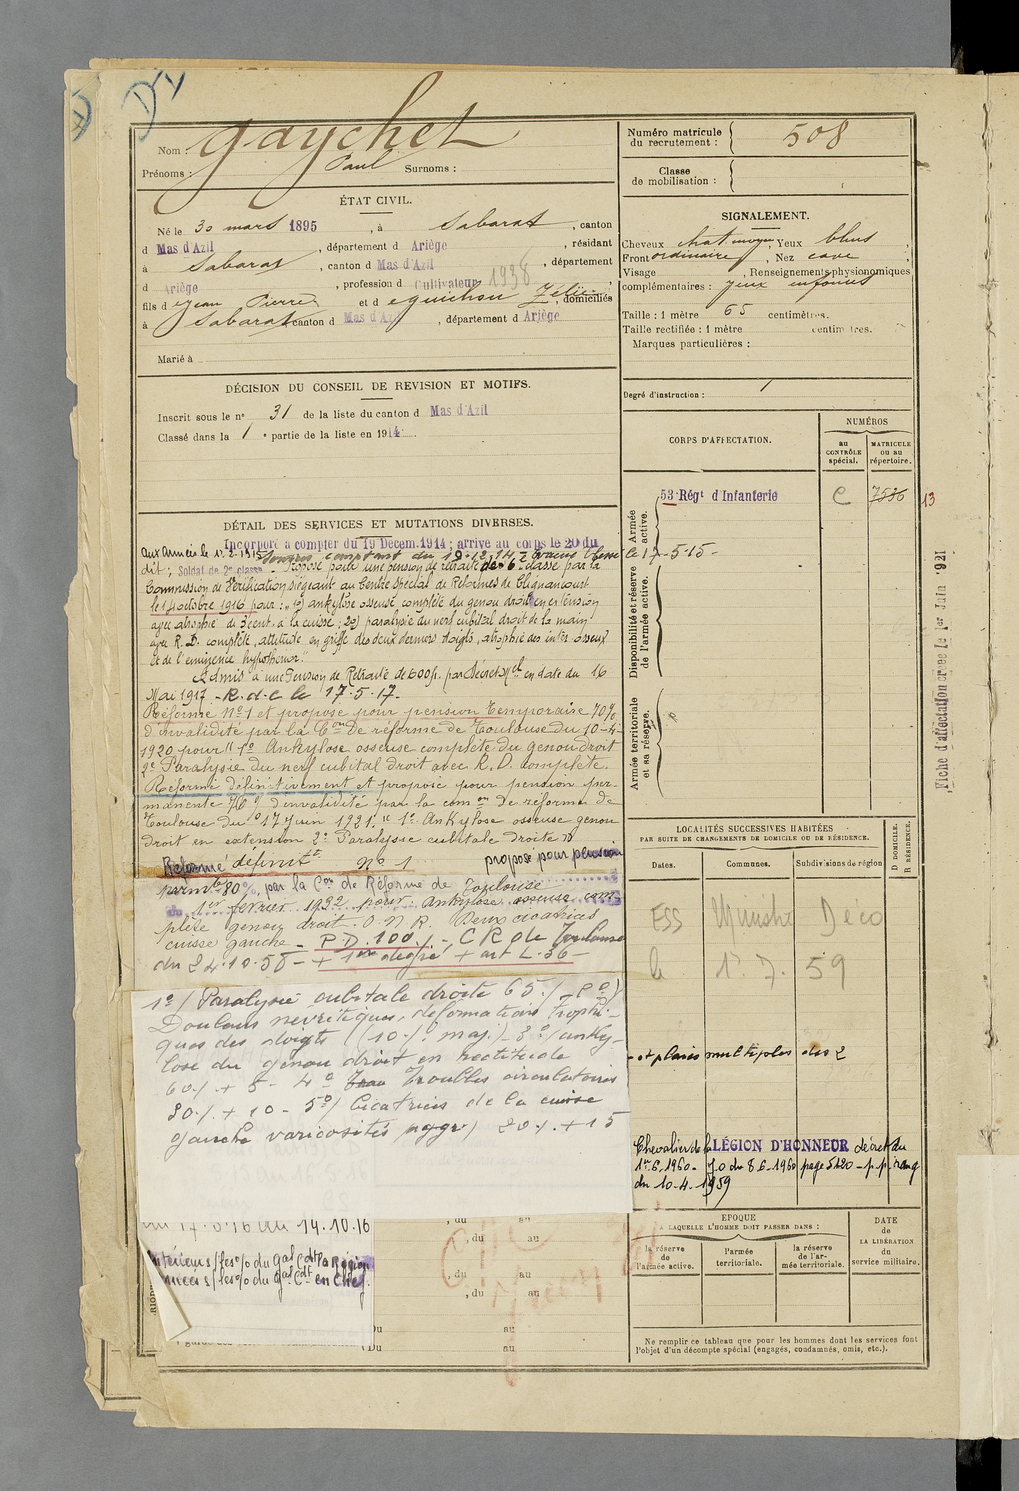 Dy
Nom : Gaychet
Prénoms : Paul Surnoms :
Numéro matricule du recrutement : 508
Classe de mobilisation :
ÉTAT CIVIL.
Né le 30 mars 1895, à Sabarat, canton
d Mas d'Azil, département d Ariège, résidant
à Sabarat, canton d Mas d'Azil, département
d Ariège, profession d Cultivateur 1938
fils d Jean Pierre et d Equichou Zélie, domiciliés
à Sabarat canton d Mas d'Azil, département d Ariège
Marié à
SIGNALEMENT.
Cheveux chat moyen, Yeux bleus,
Front ordinaire, Nez cave,
Visage , Renseignements physionomiques
complémentaires : yeux enfoncés
Taille : 1 mètre 65 centimètres.
Taille rectifiée : 1 mètre centimètres.
Marques particulières :
Degré d'instruction :
DÉCISION DU CONSEIL DE REVISION ET MOTIFS.
Inscrit sous le n° 31 de la liste du canton d Mas d'Azil
Classé dans la 1e partie de la liste en 1914.
CORPS D'AFFECTATION.
NUMÉROS
au CONTRÔLE spécial.
MATRICULE OU au répertoire.
Armée active.
53e Régt d'Infanterie
7536
13
Disponibilité et réserve de l'armée active.
Armée territoriale et sa réserve.
Fiche d'affectation créée le 1er Juin 1921
DÉTAIL DES SERVICES ET MUTATIONS DIVERSES.
Incorporé à compter du 19 Décem. 1914 ; arrivé au corps le 20 du
Aux Armées le comptant du 19.12.14. le 17-5-15-
dit ; Soldat de 2e classe - Proposé pour une pension de retraite de 6e classe par la
Commission de Vérification siégeant au Centre Spécial de Réformes de Clignancourt
le 14 octobre 1916 pour : "1°) ankylose osseuse complète du genou droit en extension
avec atrophie de 5 cent. à la cuisse ; 2°) paralysie du nerf cubital droit de la main
avec R. D. complète, attitude en griffe des deux derniers doigts, atrophie des inter osseux
et de l'éminence hypothénar."
Admis à une Pension de Retraite de 600 f. par Décret Mel en date du 16
Mai 1917 - R.d.C le 17.5.17.
Réformé N°1 et proposé pour pension temporaire 70%
d'invalidité par la Con de réforme de Toulouse du 10-4-
1920 pour "1° Ankylose osseuse complète du genou droit
2° Paralysie du nerf cubital droit avec R. D. complète.
Réformé définitivement et proposé pour pension per-
manente 70% d'invalidité par la com on de réforme de
Toulouse du 17 juin 1921. "1° Ankylose osseuse genou
droit en extension 2° Paralysie cubitale droite"
Réforme définite n° 1 proposé pour pension
permte 80% par la Con de Réforme de Toulouse
du 1er février 1932 pour : Ankylose osseuse com
plète genou droit. O.N.R. Deux cicatrices
cuisse gauche - P.D. 100% - C R de Toulouse
du 24.10.58 - + 1er degré + art L.36 -
1°/ Paralysie cubitale droite 65% - 2°/
Douleurs nevritiques, déformations trophi-
ques des doigts (10% maj.) - 3°/ anky-
lose du genou droit en rectitude
60% + 5 - 4° Troubles circulatoires
20% + 10 - 5°/ Cicatrices de la cuisse
gauche varicosités 20% + 15
du 17.5.16 au 14.10.16
Intérieurs/les o/o du Gal Cdt la Région
Armées/les o/o du Gal Cdt en Chef.
du au
, du au
, du au
, du au
Du au
Du au
LOCALITÉS SUCCESSIVES HABITÉES
PAR SUITE DE CHANGEMENTS DE DOMICILE OU DE RÉSIDENCE.
Dates. Communes. Subdivisions de région
D DOMICILE. R RÉSIDENCE.
ESS Déco
le 1. 7. 59
- et plaies multiples des 2
Chevalier de la LÉGION D'HONNEUR décret du
1er.6.1960 - J.O du 8.6.1960 page 5120 - p.p. rang
du 10.4.1959
EPOQUE
A LAQUELLE L'HOMME DOIT PASSER DANS :
la réserve de l'armée active.
l'armée territoriale.
la réserve de l'armée territoriale.
DATE de LA LIBÉRATION du service militaire.
Ne remplir ce tableau que pour les hommes dont les services font
l'objet d'un décompte spécial (engagés, condamnés, omis, etc.).